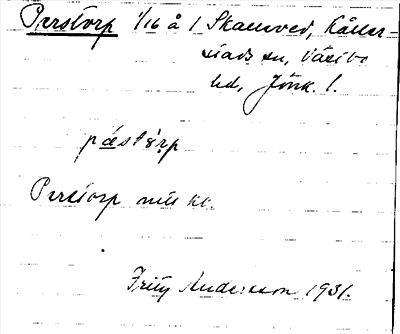 Perstorp 1/16 å 1 Skamved, Kåller-
stads sn, Västbo
hd, Jönk. l.
pæstórp
Perstorp
Fritz Andersson 1931.